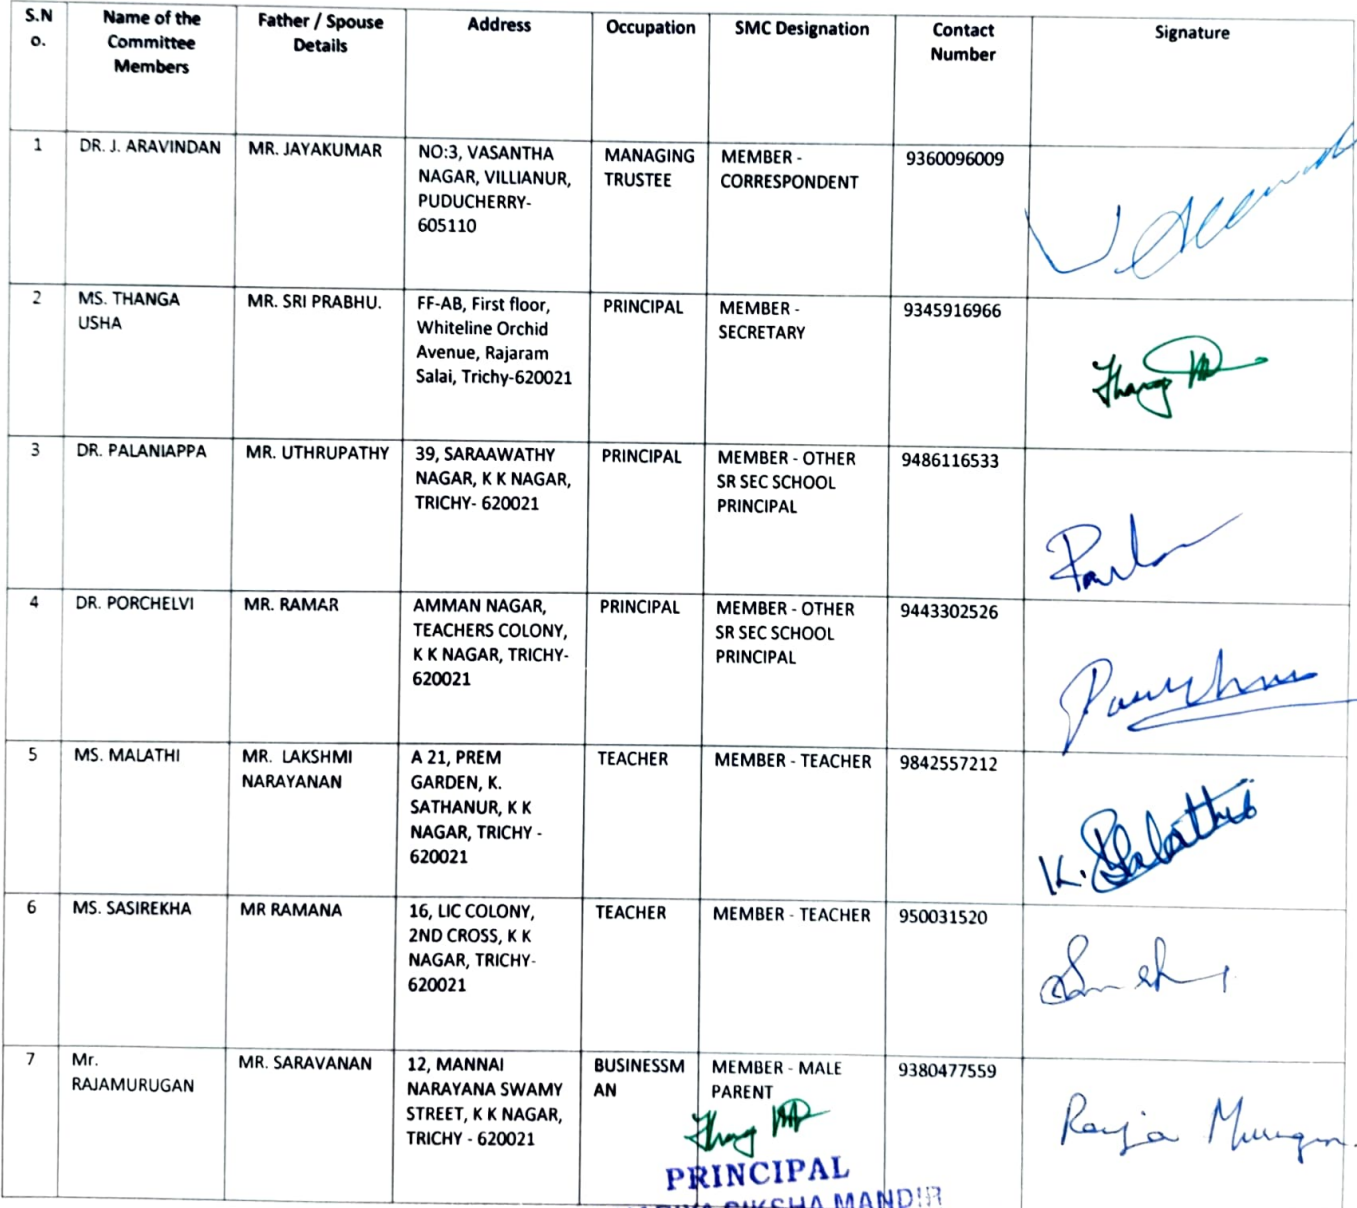 S.N
o.
Name of the
Committee
Members
Father / Spouse
Details
Address
Occupation
SMC Designation
Contact
Number
Signature
1
DR. J. ARAVINDAN
MR. JAYAKUMAR
NO:3, VASANTHA
NAGAR, VILLIANUR,
PUDUCHERRY-
605110
MANAGING
TRUSTEE
MEMBER -
CORRESPONDENT
9360096009
2
MS. THANGA
USHA
MR. SRI PRABHU.
FF-AB, First floor,
Whiteline Orchid
Avenue, Rajaram
Salai, Trichy-620021
PRINCIPAL
MEMBER -
SECRETARY
9345916966
3
DR. PALANIAPPA
MR. UTHRUPATHY
39, SARAAWATHY
NAGAR, K K NAGAR,
TRICHY- 620021
PRINCIPAL
MEMBER - OTHER
SR SEC SCHOOL
PRINCIPAL
9486116533
4
DR. PORCHELVI
MR. RAMAR
AMMAN NAGAR,
TEACHERS COLONY,
K K NAGAR, TRICHY-
620021
PRINCIPAL
MEMBER - OTHER
SR SEC SCHOOL
PRINCIPAL
9443302526
5
MS. MALATHI
MR. LAKSHMI
NARAYANAN
A 21, PREM
GARDEN, K.
SATHANUR, K K
NAGAR, TRICHY -
620021
TEACHER
MEMBER - TEACHER
9842557212
K. Malathi
6
MS. SASIREKHA
MR RAMANA
16, LIC COLONY,
2ND CROSS, K K
NAGAR, TRICHY-
620021
TEACHER
MEMBER - TEACHER
950031520
7
Mr.
RAJAMURUGAN
MR. SARAVANAN
12, MANNAI
NARAYANA SWAMY
STREET, K K NAGAR,
TRICHY - 620021
BUSINESSM
AN
MEMBER - MALE
PARENT
9380477559
Raja Murugan
PRINCIPAL
SIKSHA MANDIR